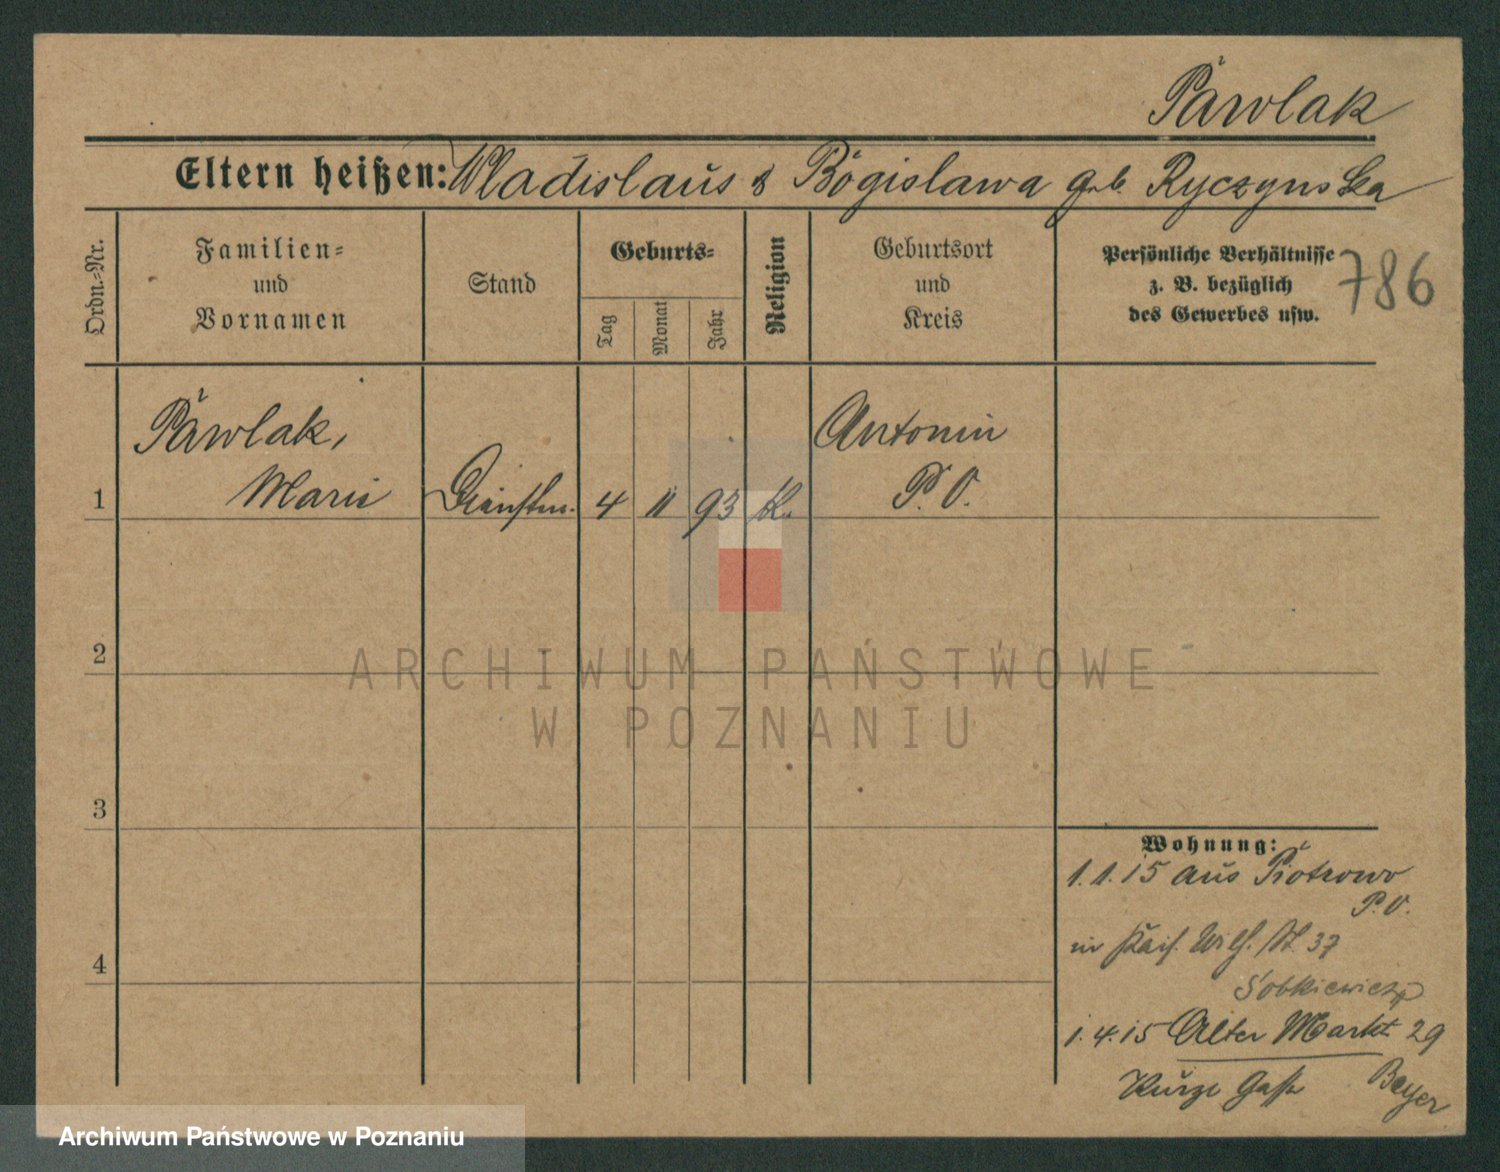 Pawlak
Eltern heißen: Wladislaus & Bogislawa geb. Ryczynska
Ordn.-Nr.
Familien-
und
Vornamen
Stand
Geburts-
Tag
Monat
Jahr
Religion
Geburtsort
und
Kreis
Persönliche Verhältnisse
z. B. bezüglich
des Gewerbes usw.
786
Pawlak,
Marie
1
Dienstm.
4
11
93
K.
Antonin
P. O.
2
ARCHIWUM PAŃSTWOWE
W POZNANIU
3
4
Wohnung:
1.1.15 aus Piotrowo
P. O.
in Kais. Wilh. St. 37
Sobkiewicz
1.4.15 Alter Markt 29
Kurze Gasse Beyer
Archiwum Państwowe w Poznaniu